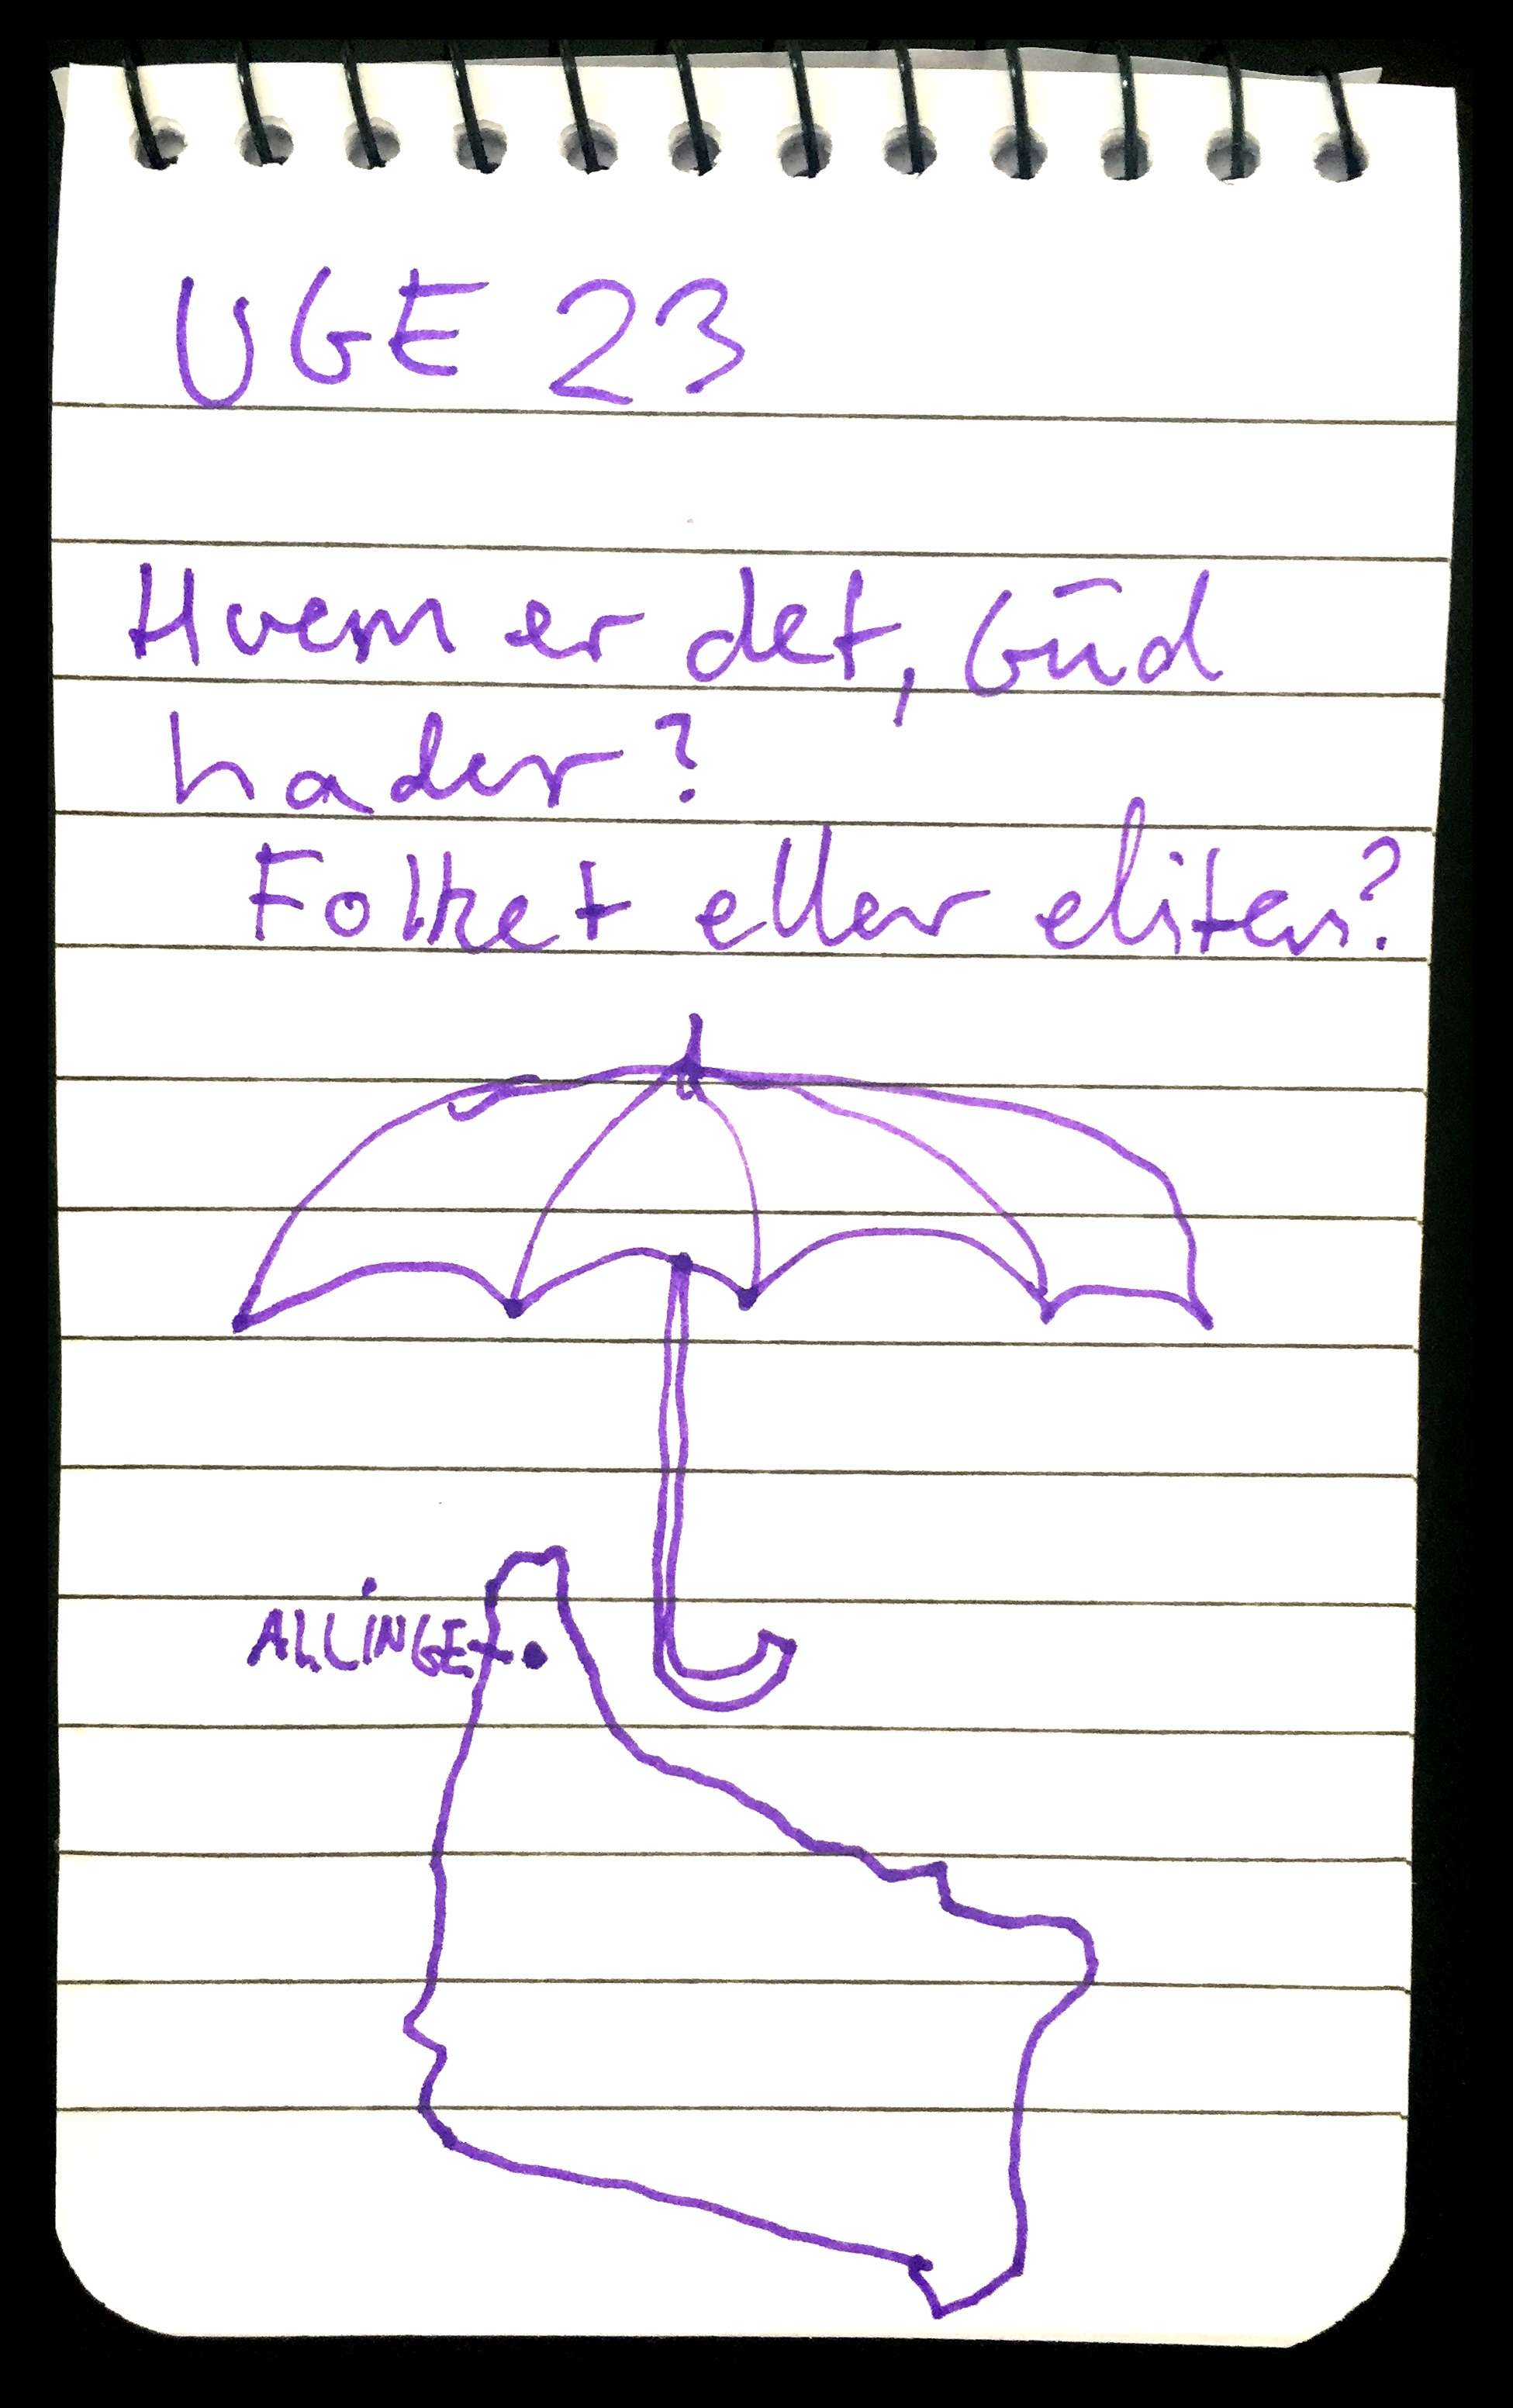 UGE 23
Hvem er det, Gud
hader?
Folket eller eliten?
ALLINGE